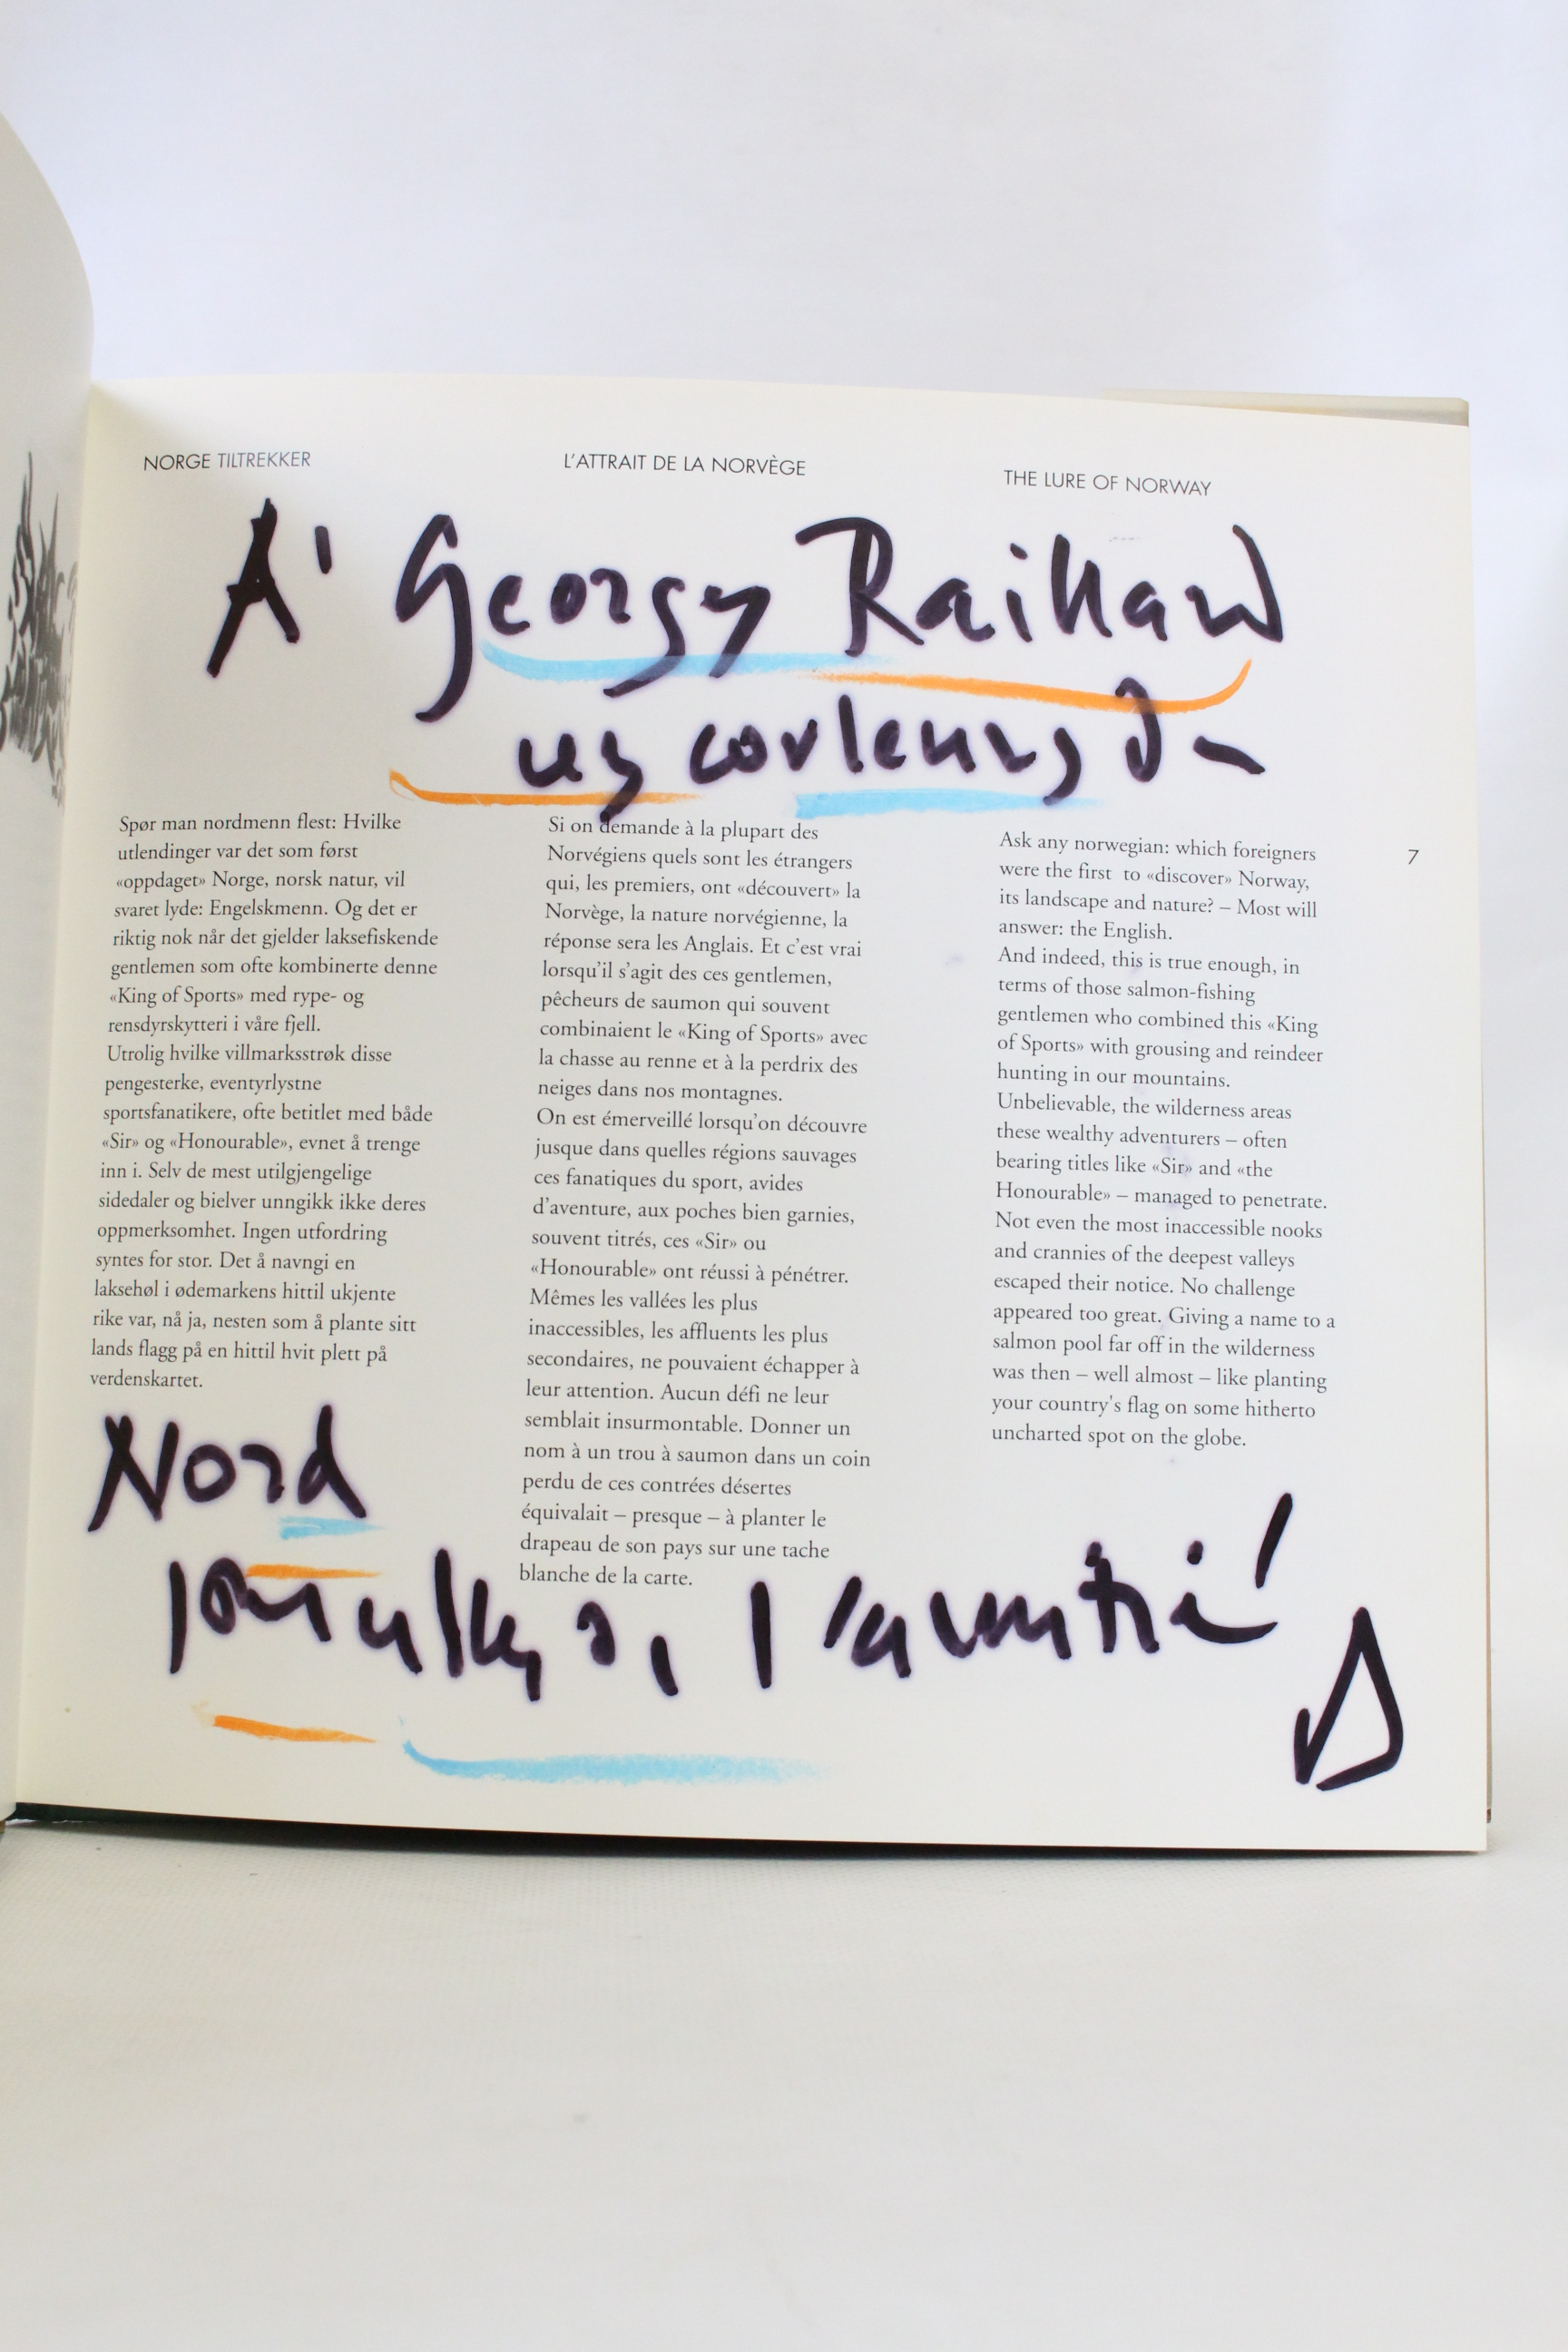 NORGE TILTREKKER
L'ATTRAIT DE LA NORVÈGE
THE LURE OF NORWAY
A' Georgy Raillard
couleurs
Spør man nordmenn flest: Hvilke
utlendinger var det som først
«oppdaget» Norge, norsk natur, vil
svaret lyde: Engelskmenn. Og det er
riktig nok når det gjelder laksefiskende
gentlemen som ofte kombinerte denne
«King of Sports» med rype- og
rensdyrskytteri i våre fjell.
Utrolig hvilke villmarksstrøk disse
pengesterke, eventyrlystne
sportsfanatikere, ofte betitlet med både
«Sir» og «Honourable», evnet å trenge
inn i. Selv de mest utilgjengelige
sidedaler og bielver unngikk ikke deres
oppmerksomhet. Ingen utfordring
syntes for stor. Det å navngi en
laksehøl i ødemarkens hittil ukjente
rike var, nå ja, nesten som å plante sitt
lands flagg på en hittil hvit plett på
verdenskartet.
Si on demande à la plupart des
Norvégiens quels sont les étrangers
qui, les premiers, ont «découvert» la
Norvège, la nature norvégienne, la
réponse sera les Anglais. Et c'est vrai
lorsqu'il s'agit des ces gentlemen,
pêcheurs de saumon qui souvent
combinaient le «King of Sports» avec
la chasse au renne et à la perdrix des
neiges dans nos montagnes.
On est émerveillé lorsqu'on découvre
jusque dans quelles régions sauvages
ces fanatiques du sport, avides
d'aventure, aux poches bien garnies,
souvent titrés, ces «Sir» ou
«Honourable» ont réussi à pénétrer.
Mêmes les vallées les plus
inaccessibles, les affluents les plus
secondaires, ne pouvaient échapper à
leur attention. Aucun défi ne leur
semblait insurmontable. Donner un
nom à un trou à saumon dans un coin
perdu de ces contrées désertes
équivalait – presque – à planter le
drapeau de son pays sur une tache
blanche de la carte.
Ask any norwegian: which foreigners
were the first to «discover» Norway,
its landscape and nature? – Most will
answer: the English.
And indeed, this is true enough, in
terms of those salmon-fishing
gentlemen who combined this «King
of Sports» with grousing and reindeer
hunting in our mountains.
Unbelievable, the wilderness areas
these wealthy adventurers – often
bearing titles like «Sir» and «the
Honourable» – managed to penetrate.
Not even the most inaccessible nooks
and crannies of the deepest valleys
escaped their notice. No challenge
appeared too great. Giving a name to a
salmon pool far off in the wilderness
was then – well almost – like planting
your country's flag on some hitherto
uncharted spot on the globe.
7
Nord
l'amitié